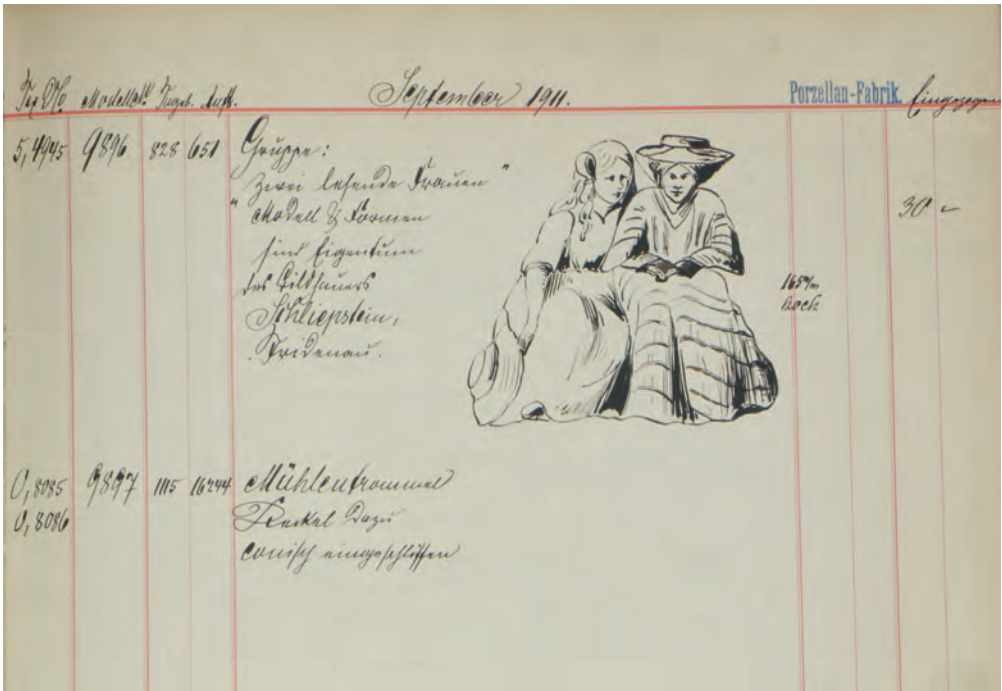 Modell№ Angeb. Auft. September 1911. Porzellan-Fabrik. Eingezogen
5,4945 9896 828 651 Gruppe:
"Zwei lesende Frauen"
30 -
"Modell & Formen
sind Eigentum
des Bildhauers
Schliepstein,
165 m/m
hoch
0,8085 9897 1115 16244 Mühlentrommel
0,8086 Deckel dazu
conisch eingeschliffen